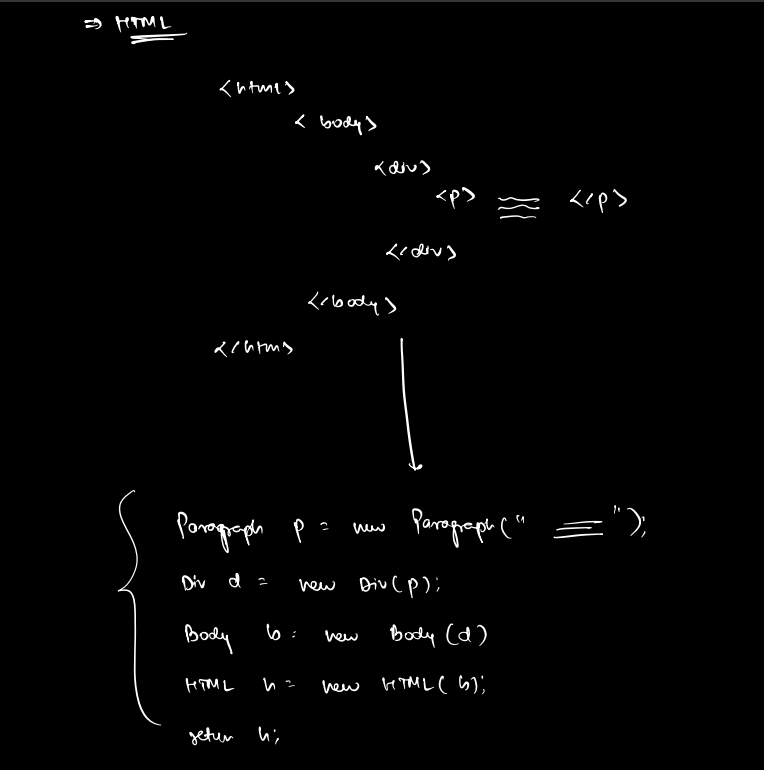 ⇒ HTML
<html>
< body>
<div>
<p> </p>
</div>
</body>
</htm>
Paragraph p = new Paragraph(" ");
Div d = new Div(p);
Body b = new Body (d)
HTML h = new HTML( b);
return h;